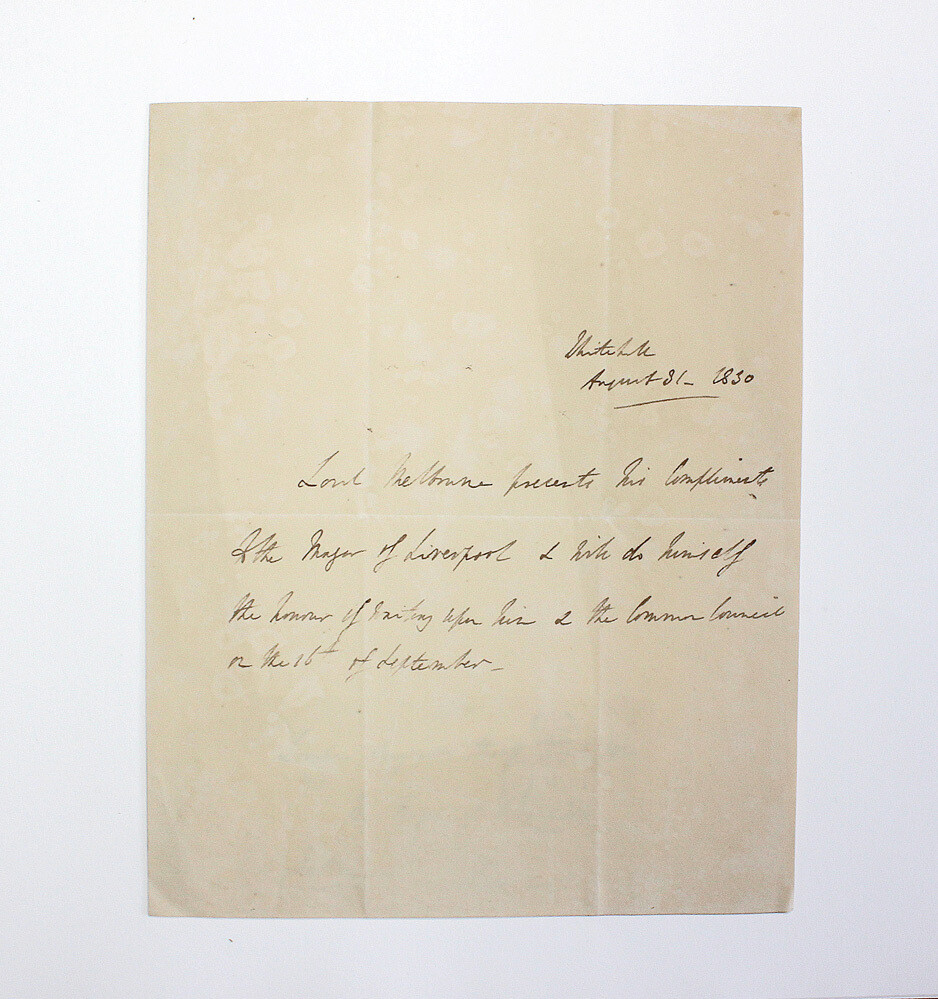 Whitehall
August 31 - 1830
Lord Melbourne presents his Compliments
to the Mayor of Liverpool & will do himself
the honour of waiting upon him & the Common Council
on the 16th of September -